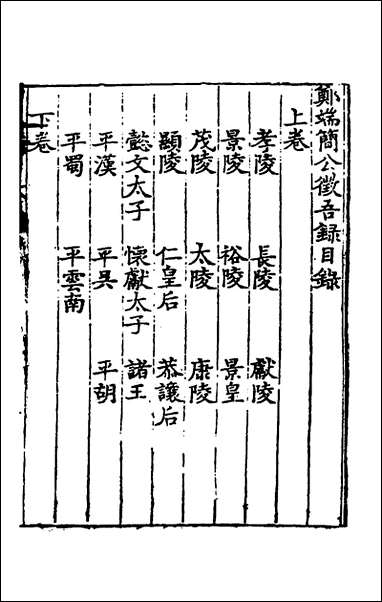 鄭端簡公徵吾録目録
上卷
孝陵 長陵 獻陵
景陵 裕陵 景皇
茂陵 太陵 康陵
顯陵 仁皇后 恭讓后
懿文太子 懷獻太子 諸王
平漢 平吳 平胡
平蜀 平雲南
下卷